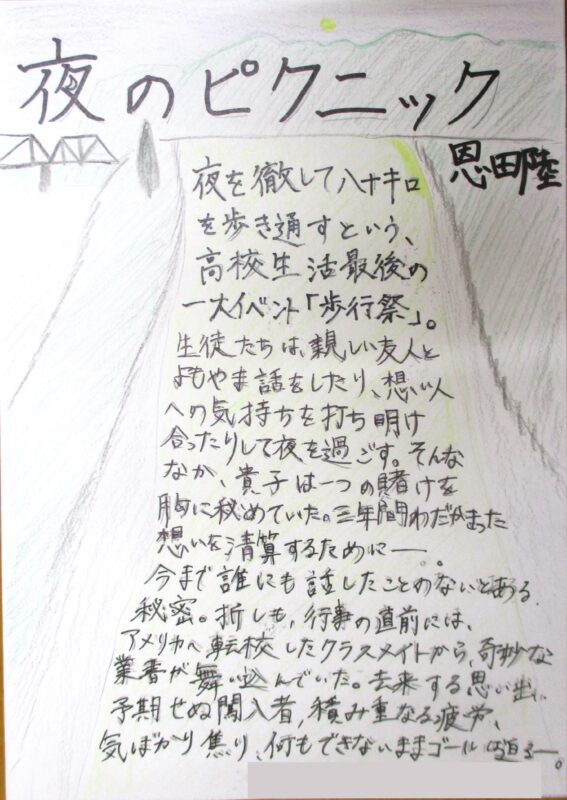 夜のピクニック
恩田陸
夜を徹して八十キロ
を歩き通すという、
高校生活最後の
一大イベント「歩行祭」。
生徒たちは、親しい友人と
よもやま話をしたり、想い人
への気持ちを打ち明け
合ったりして夜を過ごす。そんな
なか、貴子は一つの賭けを
胸に秘めていた。三年間わだかまった
想いを清算するために――。
今まで誰にも話したことのないとある
秘密。折しも、行事の直前には、
アメリカへ転校したクラスメイトから、奇妙な
葉書が舞い込んでいた。去来する思い出、
予期せぬ闖入者、積み重なる疲労、
気ばかり焦り、何もできないままゴールは迫る――。